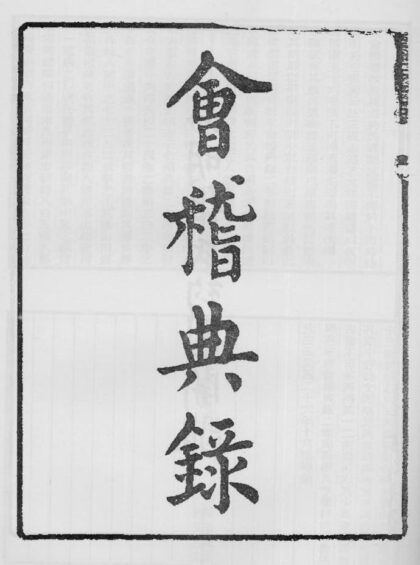 會稽典錄